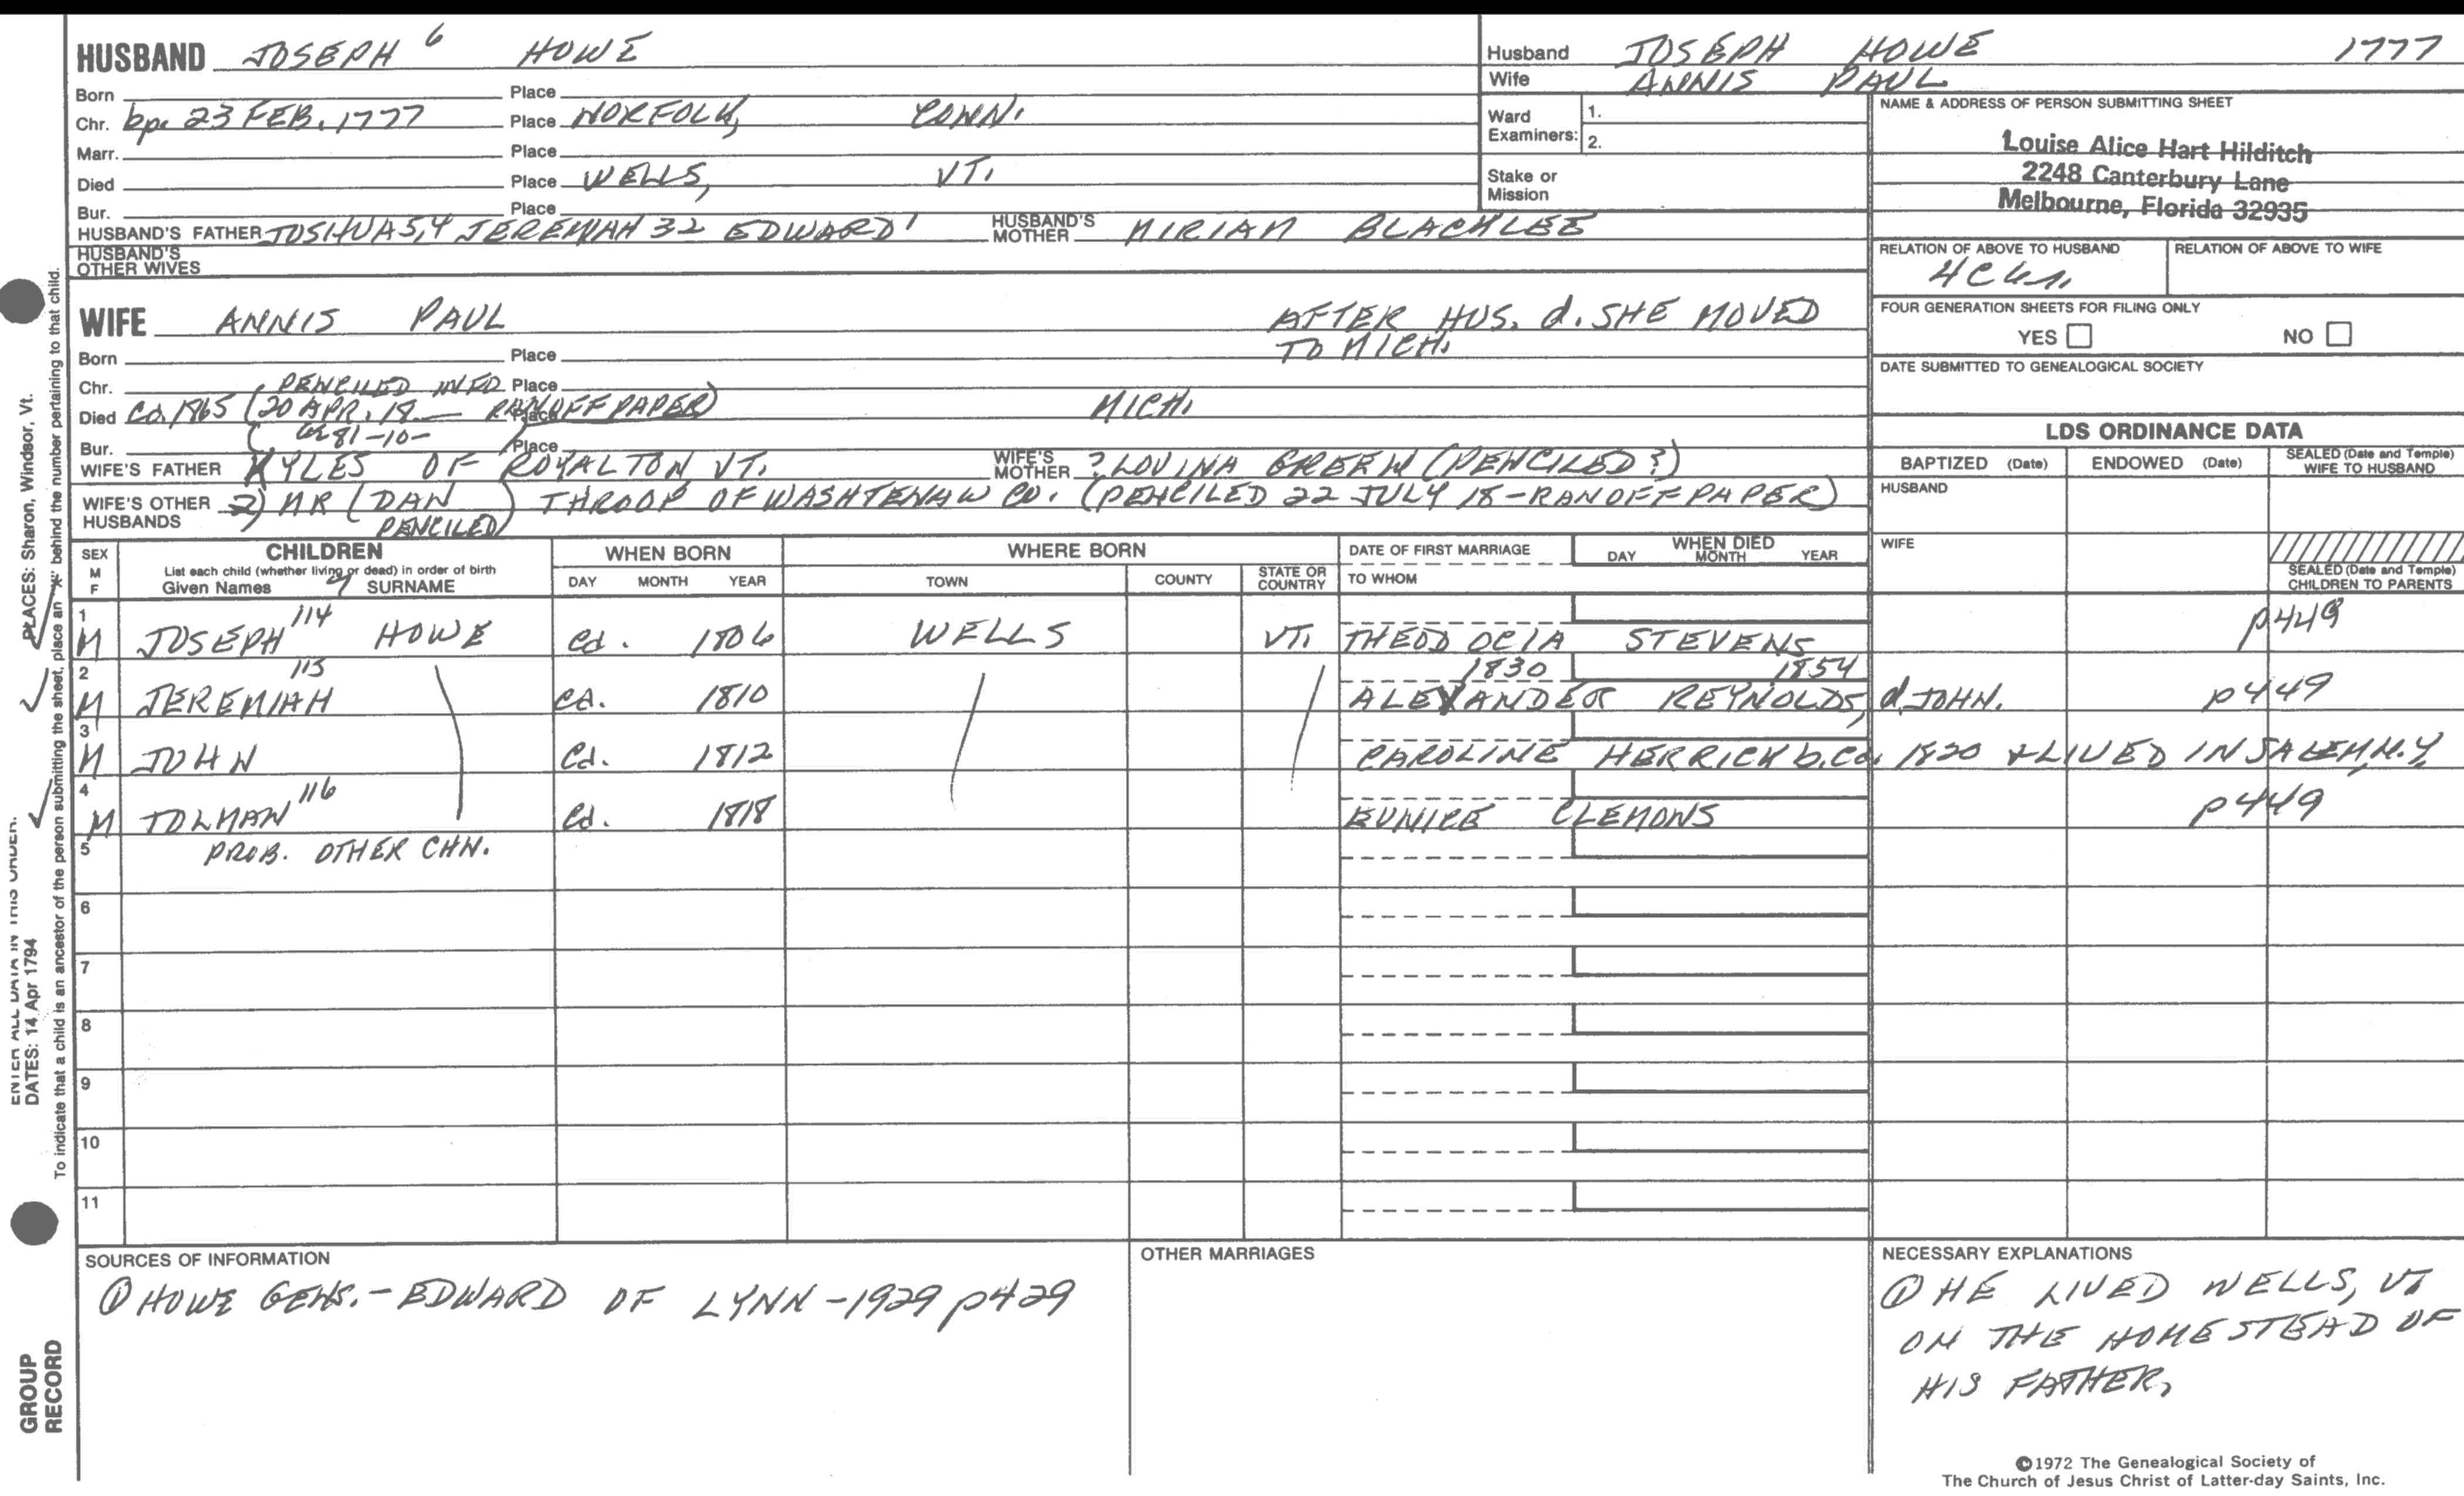 HUSBAND JOSEPH 6 HOWE
Born Place
Chr. bp. 23 FEB. 1777 Place NORFOLK, CONN.
Marr. Place
Died Place WELLS, VT.
Bur. Place
HUSBAND'S FATHER JOSHUA 5,4 JEREMIAH 32 EDWARD 1 HUSBAND'S MOTHER MIRIAM BLACKLEE
HUSBAND'S OTHER WIVES
Husband JOSEPH HOWE 1777
Wife ANNIS PAUL
Ward Examiners: 1.
2.
Stake or Mission
NAME & ADDRESS OF PERSON SUBMITTING SHEET
Louise Alice Hart Hilditch
2248 Canterbury Lane
Melbourne, Florida 32935
RELATION OF ABOVE TO HUSBAND RELATION OF ABOVE TO WIFE
FOUR GENERATION SHEETS FOR FILING ONLY
YES NO
DATE SUBMITTED TO GENEALOGICAL SOCIETY
WIFE ANNIS PAUL AFTER HUS. d. SHE MOVED
TO MICH.
Born Place
Chr. (PENCILED INFO Place
Died Ca. 1865 (20 APR. 18— RANOFF PAPER) Place MICH.
81-10-
Bur. Place
WIFE'S FATHER KYLES OF ROYALTON VT. WIFE'S MOTHER ? LOVINA GREEN (PENCILED?)
WIFE'S OTHER HUSBANDS 2) MR (DAN PENCILED) THROOP OF WASHTENAW CO. (PENCILED 22 JULY 18-RANOFF PAPER)
LDS ORDINANCE DATA
BAPTIZED (Date) ENDOWED (Date) SEALED (Date and Temple) WIFE TO HUSBAND
HUSBAND
WIFE
SEALED (Date and Temple) CHILDREN TO PARENTS
SEX M F CHILDREN
List each child (whether living or dead) in order of birth
Given Names 7 SURNAME
WHEN BORN DAY MONTH YEAR
WHERE BORN TOWN COUNTY STATE OR COUNTRY
DATE OF FIRST MARRIAGE TO WHOM
WHEN DIED DAY MONTH YEAR
1 M JOSEPH 114 HOWE Ca. 1806 WELLS VT. THEODOCIA STEVENS p449
2 M JEREMIAH 115 CA. 1810 1830 1854 ALEXANDER REYNOLDS, d. JOHN. p449
3 M JOHN Ca. 1812 CAROLINE HERRICK b. Ca. 1820 & LIVED IN SALEM N.Y.
4 M TOLMAN 116 Ca. 1818 EUNICE CLEMONS p449
5 PROB. OTHER CHN.
6
7
8
9
10
11
SOURCES OF INFORMATION
① HOWE GENS. - EDWARD OF LYNN - 1929 p429
OTHER MARRIAGES
NECESSARY EXPLANATIONS
① HE LIVED WELLS, VT
ON THE HOMESTEAD OF
HIS FATHER.
©1972 The Genealogical Society of
The Church of Jesus Christ of Latter-day Saints, Inc.
PLACES: Sharon, Windsor, Vt.
ENTER ALL DATA IN THIS ORDER:
DATES: 14 Apr 1794
To indicate that a child is an ancestor of the person submitting the sheet, place an "X" behind the number pertaining to that child.
GROUP
RECORD